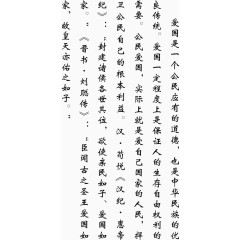 爱国是一个公民应有的道德，也是中华民族的优
良传统。爱国一定程度上是保证人的生存自由权利的
需要。公民爱国，实际上就是爱自己国家的人民，捍
卫公民自己的根本利益。汉·荀悦《汉纪·惠帝
纪》：“封建诸侯各世其位，欲使亲民如子、爱国如
家。”《晋书·刘聪传》：“臣闻古之圣王爱国如
家，故皇天亦佑之如子。”